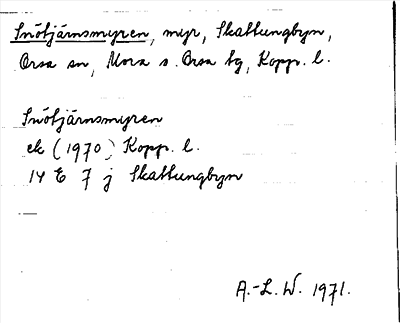 Snötjärnsmyren, myr, Skattungbyn,
Orsa sn, Mora s. Orsa tg, Kopp. l.
Snötjärnsmyren
ek (1970) Kopp. l.
14 E 7 j Skattungbyn
A.-L. W. 1971.